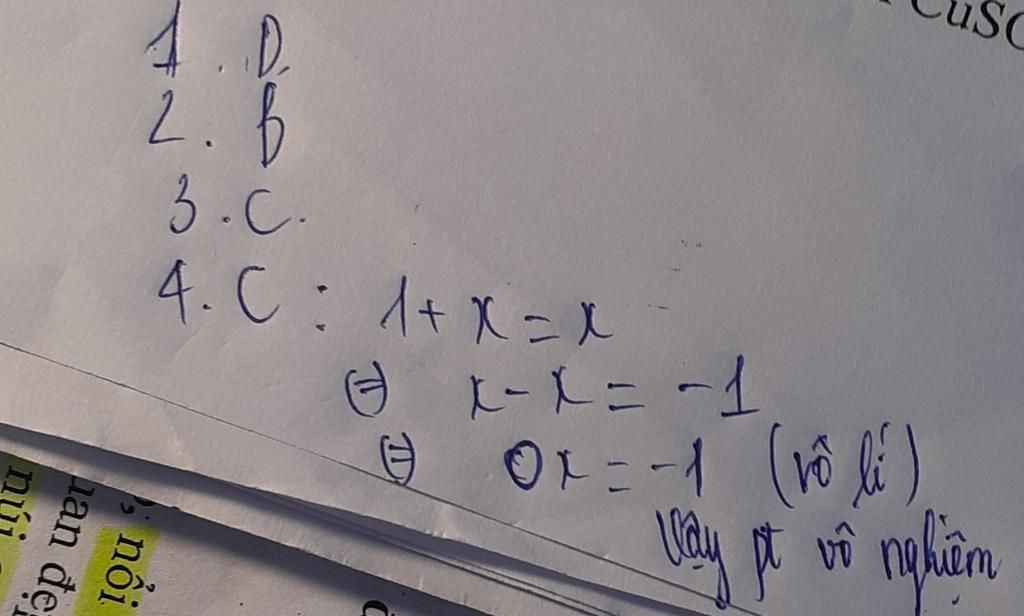 CuSO
1. D.
2. B
3. C.
4. C : 1 + x = x
⇔ x - x = -1
⇔ 0x = -1 (vô lí)
Vậy pt vô nghiệm
nổi
đẹ
núi